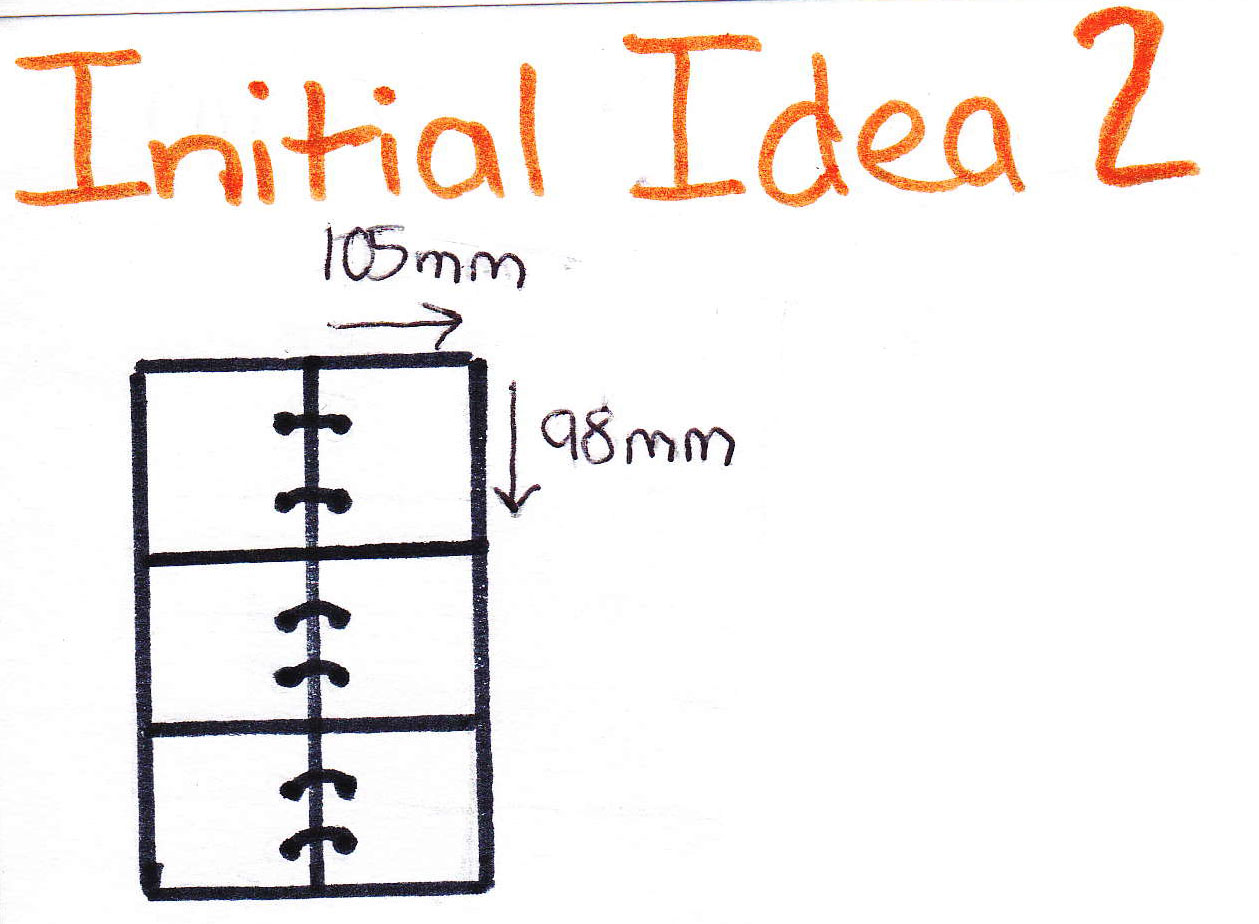 Initial Idea 2
105mm
98mm